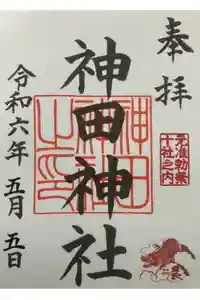 奉拝
元准勅祭
十社之内
神田神社
令和六年 五月 五日